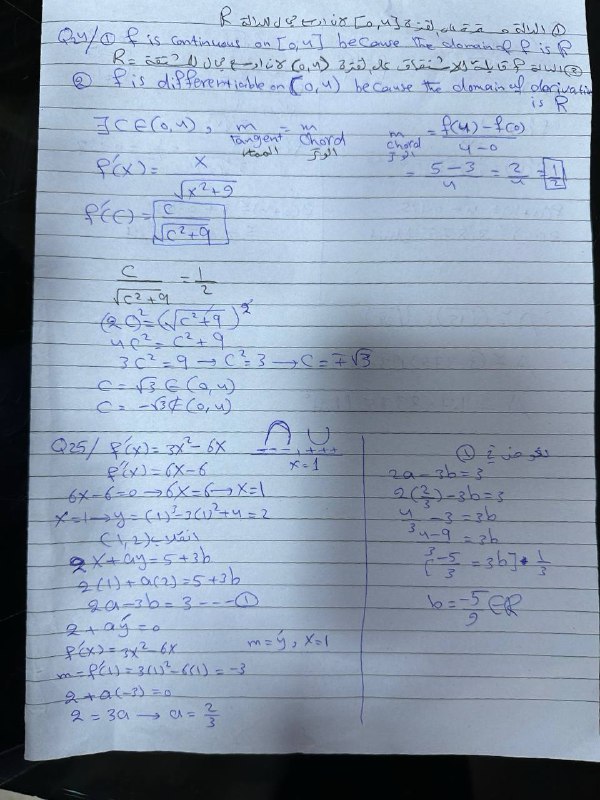 ① الدالة مستمرة على الفترة [0,4] لأن أوسع مجال للدالة R
Q24/ ① f is continuous on [0,4] because the domain of f is R
② الدالة f قابلة للاشتقاق على الفترة (0,4) لأن أوسع مجال للمشتقة = R
② f is differentiable on (0,4) because the domain of derivative is R
∃ C∈(0,4), m tangent المماس = m chord الوتر
m chord الوتر = f(4)-f(0) / 4-0
= 5-3 / 4 = 2/4 = 1/2
f'(x) = x / √x²+9
f'(c) = c / √c²+9
c / √c²+9 = 1/2
(2c)² = (√c²+9)²
4c² = c²+9
3c² = 9 → c² = 3 → c = ∓√3
c = √3 ∈ (0,4)
c = -√3 ∉ (0,4)
Q25/ f'(x) = 3x²-6x
f''(x) = 6x-6
6x-6=0 → 6x=6 → x=1
--- . +++
x=1
x=1 → y = (1)³-3(1)²+4 = 2
(1,2) انقلاب
2x+ay = 5+3b
2(1)+a(2) = 5+3b
2a-3b = 3 ---- ①
2+aý = 0
f'(x) = 3x²-6x
m = ý, x=1
m = f'(1) = 3(1)²-6(1) = -3
2+a(-3) = 0
2 = 3a → a = 2/3
نعوض في ①
2a-3b = 3
2(2/3)-3b = 3
4/3 - 3 = 3b
4-9 / 3 = 3b
[-5/3 = 3b] * 1/3
b = -5/9 ∈ R